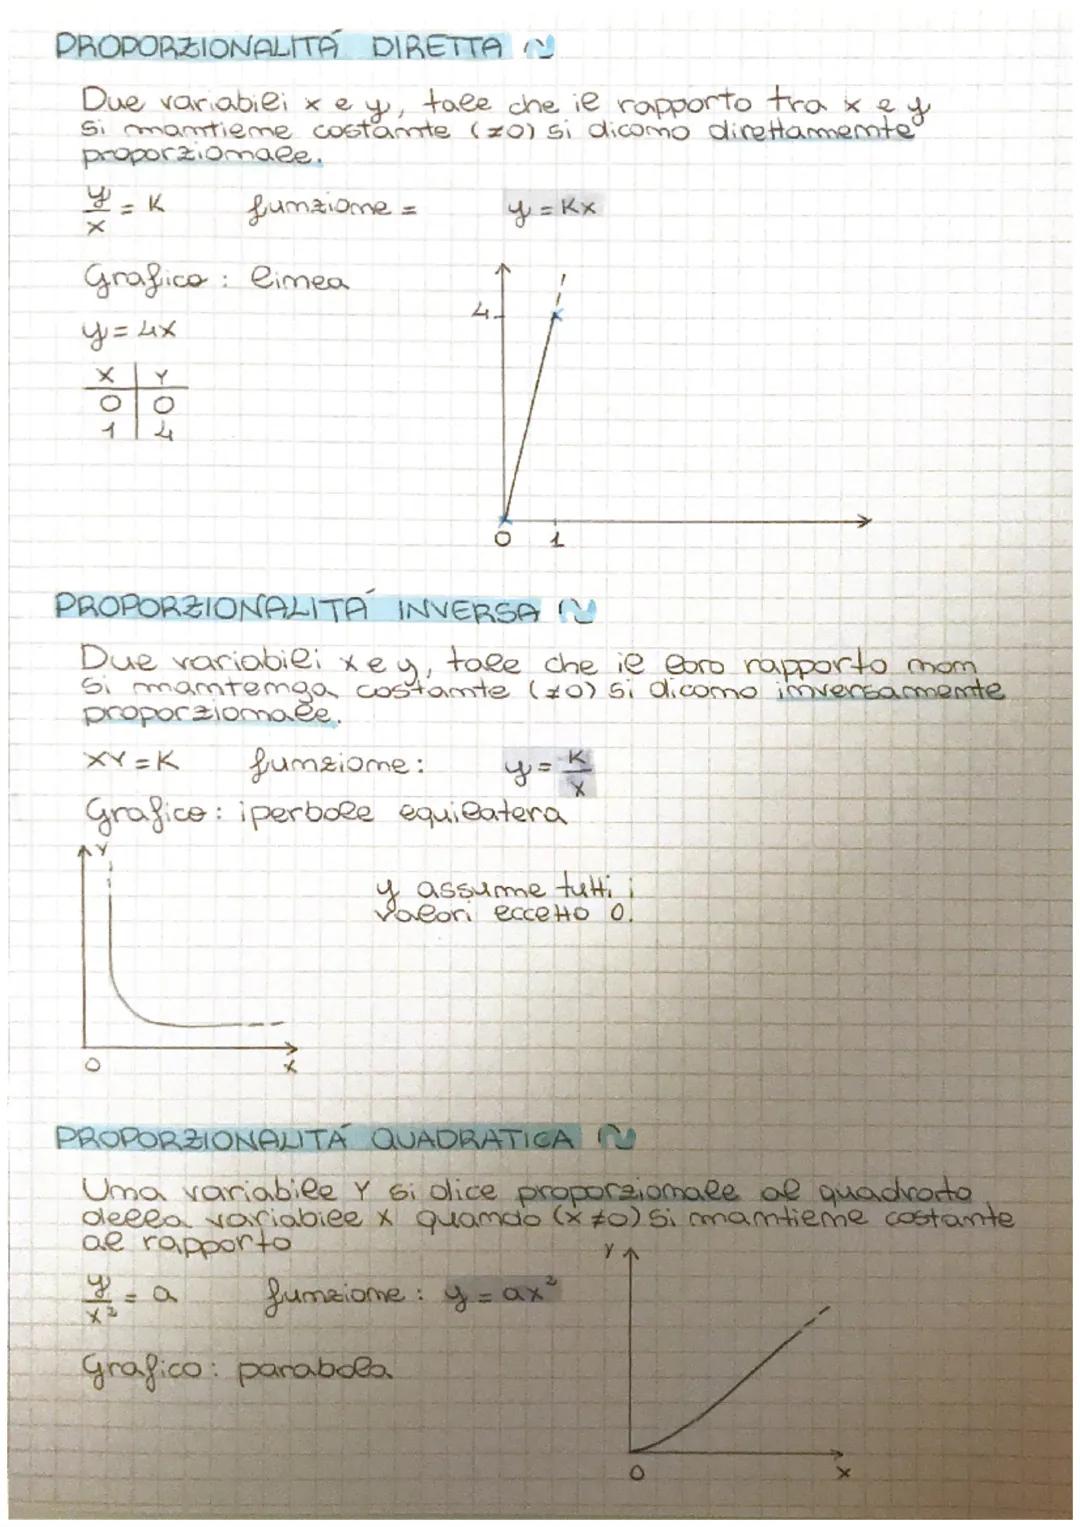 PROPORZIONALITÁ DIRETTA
Due variabili x e y, tale che il rapporto tra x e y
si mantiene costante (≠0) si dicono direttamente
proporzionale.
y/x = K funzione = y = Kx
Grafico : linea
y = 4x
X | Y
0 | 0
1 | 4
4
0 1
PROPORZIONALITÁ INVERSA
Due variabili x e y, tale che il loro rapporto non
si mantenga costante (≠0) si dicono inversamente
proporzionale.
XY = K funzione: y = K/X
Grafico: iperbole equilatera
Y
y assume tutti i
valori eccetto 0.
0 X
PROPORZIONALITÁ QUADRATICA
Una variabile Y si dice proporzionale al quadrato
della variabile x quando (x ≠0) si mantiene costante
al rapporto
Y
y/x² = a funzione: y = ax²
Grafico: parabola
0 X